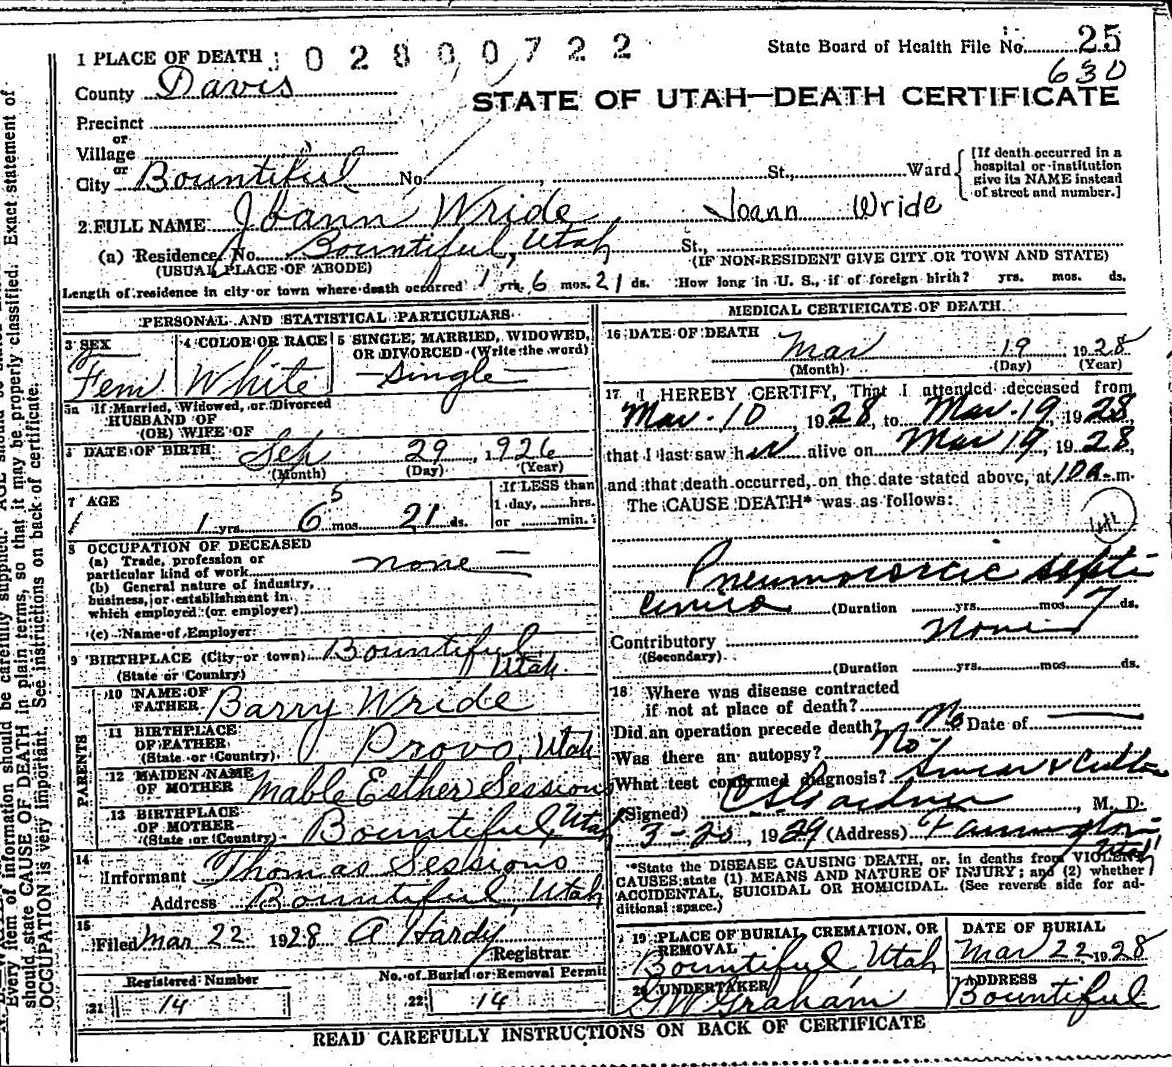 1 PLACE OF DEATH
02800722
State Board of Health File No. 25
630
County Davis
STATE OF UTAH—DEATH CERTIFICATE
Precinct
or
Village
or
City Bountiful No. St., Ward
[If death occurred in a hospital or institution give its NAME instead of street and number.]
2 FULL NAME Joann Wride, Joann Wride
(a) Residence, No. Bountiful, Utah St.,
(USUAL PLACE OF ABODE) (IF NON-RESIDENT GIVE CITY OR TOWN AND STATE)
Length of residence in city or town where death occurred 1 yrs. 6 mos. 21 ds. How long in U. S., if of foreign birth? yrs. mos. ds.
PERSONAL AND STATISTICAL PARTICULARS
3 SEX
Fem
4 COLOR OR RACE
White
5 SINGLE, MARRIED, WIDOWED, OR DIVORCED (Write the word)
Single
5a If Married, Widowed, or Divorced
HUSBAND OF
(OR) WIFE OF
6 DATE OF BIRTH Sep 29, 1926
(Month) (Day) (Year)
7 AGE
1 yrs. 6 5 mos. 21 ds.
If LESS than
1 day, hrs.
or min.
8 OCCUPATION OF DECEASED
(a) Trade, profession or
particular kind of work none
(b) General nature of industry,
business, or establishment in
which employed (or employer)
(c) Name of Employer
9 BIRTHPLACE (City or town) Bountiful
(State or Country) Utah.
PARENTS
10 NAME OF FATHER Barry Wride
11 BIRTHPLACE OF FATHER (State or Country) Provo, Utah
12 MAIDEN NAME OF MOTHER Mable Esther Sessions
13 BIRTHPLACE OF MOTHER (State or Country) Bountiful, Utah
14 Informant Thomas Sessions
Address Bountiful, Utah
15 Filed Mar 22 1928 A Hardy
Registrar
Registered Number
No. of Burial or Removal Permit
21 14
22 14
MEDICAL CERTIFICATE OF DEATH
16 DATE OF DEATH
Mar 19 1928
(Month) (Day) (Year)
17 I HEREBY CERTIFY, That I attended deceased from
Mar. 10, 1928, to Mar. 19, 1928
that I last saw her alive on Mar 19, 1928,
and that death occurred, on the date stated above, at 10 a. m.
The CAUSE DEATH* was as follows:
Pneumococcic septi
cemia (Duration yrs. mos. 7 ds.
Contributory None
(Secondary)
(Duration yrs. mos. ds.
18 Where was disease contracted
if not at place of death?
Did an operation precede death? No Date of
Was there an autopsy? No
What test confirmed diagnosis? Smear & Culture
(Signed) Gardner, M. D.
3-20, 1929 (Address) Farmington, Utah
*State the DISEASE CAUSING DEATH, or, in deaths from VIOLENT
CAUSES state (1) MEANS AND NATURE OF INJURY; and (2) whether
ACCIDENTAL, SUICIDAL OR HOMICIDAL. (See reverse side for ad-
ditional space.)
19 PLACE OF BURIAL, CREMATION, OR REMOVAL
Bountiful Utah
DATE OF BURIAL
Mar 22 1928
20 UNDERTAKER
GW Graham
ADDRESS
Bountiful
READ CAREFULLY INSTRUCTIONS ON BACK OF CERTIFICATE
Every item of information should be carefully supplied. AGE should be
should state CAUSE OF DEATH in plain terms, so that it may be properly classified. Exact statement of
OCCUPATION is very important. See instructions on back of certificate.